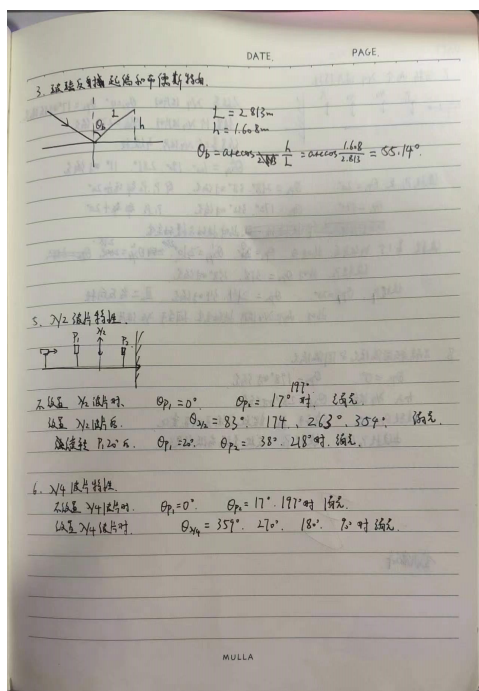 DATE. PAGE.
3. 玻璃反射 起偏和布儒斯特角.
L = 2.813m
h = 1.608m
θb = arccos h/L = arccos 1.608/2.813 = 55.14°.
θb L h
5. λ/2 波片特性.
P1 λ/2 P2
197°
不放置 λ/2 波片时, θP1 = 0°. θP2 = 17° 时, 消光.
放置 λ/2 波片后. θλ/2 = 83°. 174. 263°. 354° 消光.
继续转 P1 20°后. θP1 = 20°. θP2 = 38°. 218°时. 消光.
6. λ/4 波片特性.
不放置 λ/4 波片时. θP1 = 0°. θP2 = 17°. 197°时 消光.
放置 λ/4 波片时. θλ/4 = 359°. 270°. 180°. 90° 时 消光.
MULLA